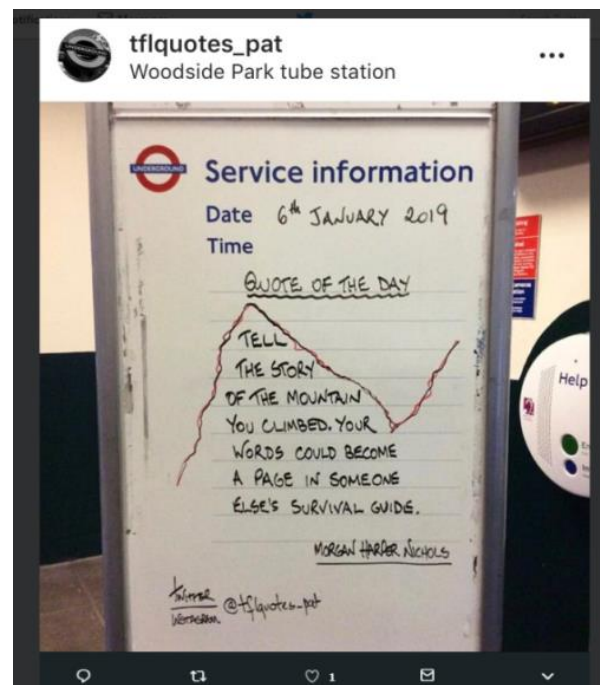 tflquotes_pat
Woodside Park tube station
UNDERGROUND
Service information
Date 6th JANUARY 2019
Time
QUOTE OF THE DAY
TELL
THE STORY
OF THE MOUNTAIN
YOU CLIMBED. YOUR
WORDS COULD BECOME
A PAGE IN SOMEONE
ELSE'S SURVIVAL GUIDE.
MORGAN HARPER NICHOLS
TWITTER
INSTAGRAM
@tflquotes_pat
Help
1